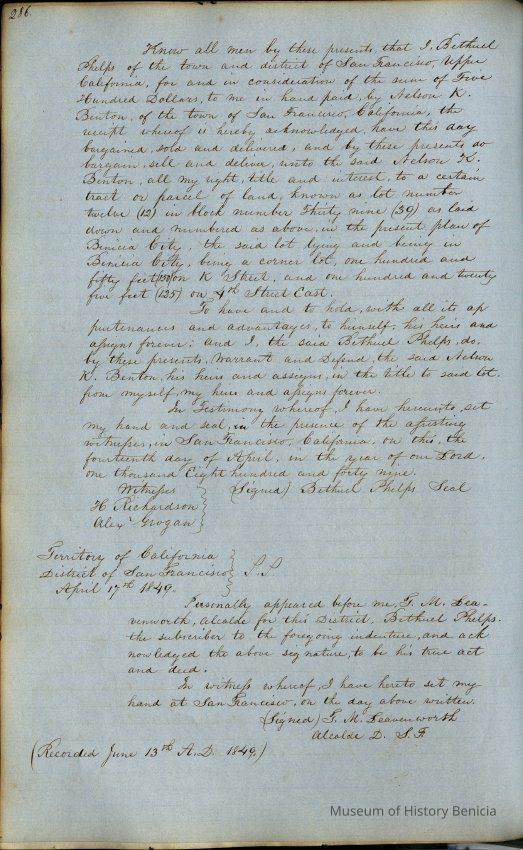 286.
Know all men by these presents, that I, Bethuel
Phelps of the town and district of San Francisco, Upper
California, for and in consideration of the sum of Five
Hundred Dollars, to me in hand paid, by Nelson K.
Benton, of the town of San Francisco, California, the
receipt whereof is hereby acknowledged, have this day
bargained, sold and delivered, and by these presents do
bargain, sell and deliver, unto the said Nelson K.
Benton, all my right, title and interest, to a certain
tract or parcel of land, known as lot number
twelve (12) in block number Thirty nine (39) as laid
down and numbered as above, in the present plan of
Benicia City, the said lot lying and being in
Benicia City, being a corner lot, one hundred and
fifty feet (150) on K Street, and one hundred and twenty
five feet (125) on 4th Street East.
To have and to hold, with all its ap
purtenances and advantages, to himself, his heirs and
assigns forever: and I, the said Bethuel Phelps, do,
by these presents, Warrant and Defend, the said Nelson
K. Benton, his heirs and assigns, in the title to said lot.
from myself, my heirs and assigns forever.
In Testimony whereof, I have hereunto, set
my hand and seal, in the presence of the attesting
witnesses, in San Francisco, California, on this, the
fourteenth day of April, in the year of our Lord,
one thousand Eight hundred and forty nine.
Witnesses (Signed) Bethuel Phelps Seal
H Richardson
Alexr Grogan
Territory of California
District of San Francisco S.S.
April 17th 1849.
Personally appeared before me, T. M. Lea-
venworth, alcalde for this District, Bethuel Phelps.
the subscriber to the foregoing indenture, and ack
nowledged the above signature, to be his true act
and deed.
In witness whereof, I have hereto set my
hand at San Francisco, on the day above written.
(Signed) T. M. Leavenworth
Alcalde D. S. F.
(Recorded June 13th A.D. 1849,)
Museum of History Benicia